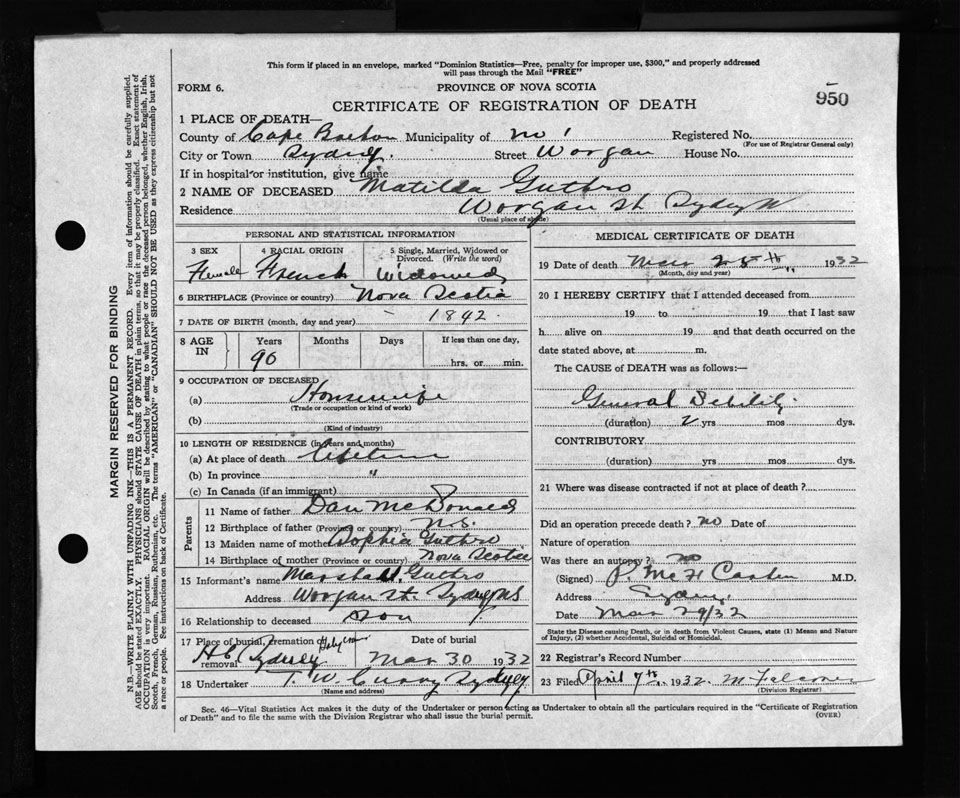 This form if placed in an envelope, marked "Dominion Statistics—Free, penalty for improper use, $300," and properly addressed
will pass through the Mail "FREE"
FORM 6.
PROVINCE OF NOVA SCOTIA
950
CERTIFICATE OF REGISTRATION OF DEATH
1 PLACE OF DEATH—
County of Cape Breton Municipality of No 1 Registered No.
(For use of Registrar General only)
City or Town Sydney. Street Worgan House No.
If in hospital or institution, give name
2 NAME OF DECEASED Matilda Guthro
Residence Worgan St Sydney
(Usual place of abode)
PERSONAL AND STATISTICAL INFORMATION
3 SEX 4 RACIAL ORIGIN 5 Single, Married, Widowed or
Divorced. (Write the word)
Female French Widowed
6 BIRTHPLACE (Province or country) Nova Scotia
7 DATE OF BIRTH (month, day and year) - 1842
8 AGE IN Years Months Days If less than one day,
90 hrs. or min.
9 OCCUPATION OF DECEASED
(a) Housewife
(Trade or occupation or kind of work)
(b)
(Kind of industry)
10 LENGTH OF RESIDENCE (in years and months)
(a) At place of death Lifetime
(b) In province "
(c) In Canada (if an immigrant)
Parents
11 Name of father Dan McDonald
12 Birthplace of father (Province or country) N.S.
13 Maiden name of mother Sophia Guthro
14 Birthplace of mother (Province or country) Nova Scotia
15 Informant's name Marshall Guthro
Address Worgan St. Sydney NS
16 Relationship to deceased Son
17 Place of burial, cremation or removal Holy Sydney Date of burial Mar 30 1932
18 Undertaker T. W. Curry Sydney
(Name and address)
MEDICAL CERTIFICATE OF DEATH
19 Date of death Mar 28th, 1932
(Month, day and year)
20 I HEREBY CERTIFY that I attended deceased from
19 to 19 that I last saw
h alive on 19 and that death occurred on the
date stated above, at m.
The CAUSE of DEATH was as follows:—
General Debility.
(duration) 2 yrs mos dys.
CONTRIBUTORY
(duration) yrs mos dys.
21 Where was disease contracted if not at place of death?
Did an operation precede death? no Date of
Nature of operation
Was there an autopsy? no
(Signed) M.D.
Address Sydney
Date Mar 29/32
State the Disease causing Death, or in death from Violent Causes, state (1) Means and Nature
of Injury, (2) whether Accidental, Suicidal or Homicidal.
22 Registrar's Record Number
23 Filed April 7th, 1932 M Falconer
(Division Registrar)
Sec. 46—Vital Statistics Act makes it the duty of the Undertaker or person acting as Undertaker to obtain all the particulars required in the "Certificate of Registration
of Death" and to file the same with the Division Registrar who shall issue the burial permit.
(OVER)
MARGIN RESERVED FOR BINDING
N.B.—WRITE PLAINLY WITH UNFADING INK—THIS IS A PERMANENT RECORD. Every item of information should be carefully supplied.
AGE should be stated EXACTLY. PHYSICIANS should STATE CAUSE OF DEATH in plain terms, so that it may be properly classified. Exact statement of
OCCUPATION is very important. RACIAL ORIGIN will be described by stating to what people or race the deceased person belonged, whether English, Irish,
Scotch, French, German, Russian, Ruthenian, etc. The terms "AMERICAN" or "CANADIAN" SHOULD NOT BE USED as they express citizenship but not
a race or people. See instructions on back of Certificate.